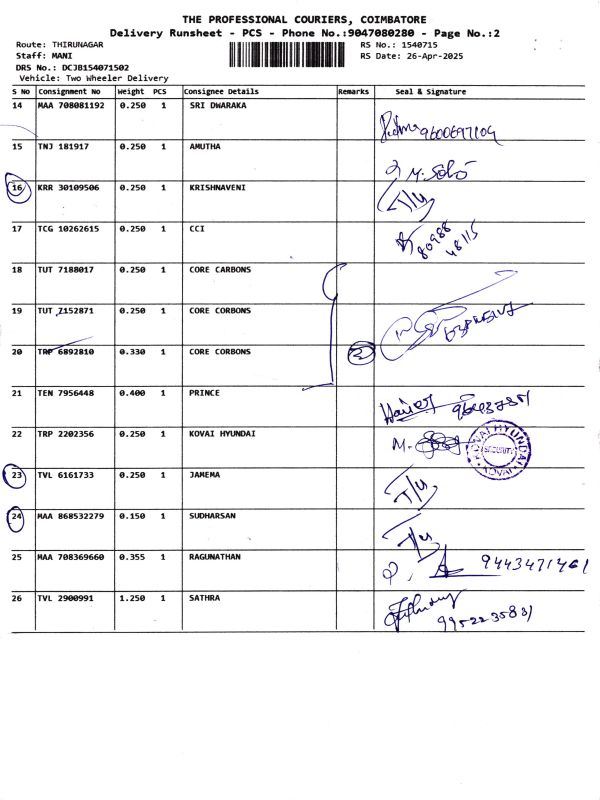 THE PROFESSIONAL COURIERS, COIMBATORE
Delivery Runsheet - PCS - Phone No.:9047080280 - Page No.:2
Route: THIRUNAGAR RS No.: 1540715
Staff: MANI RS Date: 26-Apr-2025
DRS No.: DCJB154071502
Vehicle: Two Wheeler Delivery
S No Consignment No Weight PCS Consignee Details Remarks Seal & Signature
14 MAA 708081192 0.250 1 SRI DWARAKA
9600697104
15 TNJ 181917 0.250 1 AMUTHA
16 KRR 30109506 0.250 1 KRISHNAVENI
17 TCG 10262615 0.250 1 CCI
80988
48115
18 TUT 7188017 0.250 1 CORE CARBONS
19 TUT 7152871 0.250 1 CORE CORBONS
20 TRP 6892810 0.330 1 CORE CORBONS
21 TEN 7956448 0.400 1 PRINCE
22 TRP 2202356 0.250 1 KOVAI HYUNDAI
KOVAI HYUNDAI
SECURITY
KOVAI
23 TVL 6161733 0.250 1 JAMEMA
24 MAA 868532279 0.150 1 SUDHARSAN
25 MAA 708369660 0.355 1 RAGUNATHAN
9443471461
26 TVL 2900991 1.250 1 SATHRA
9952235831